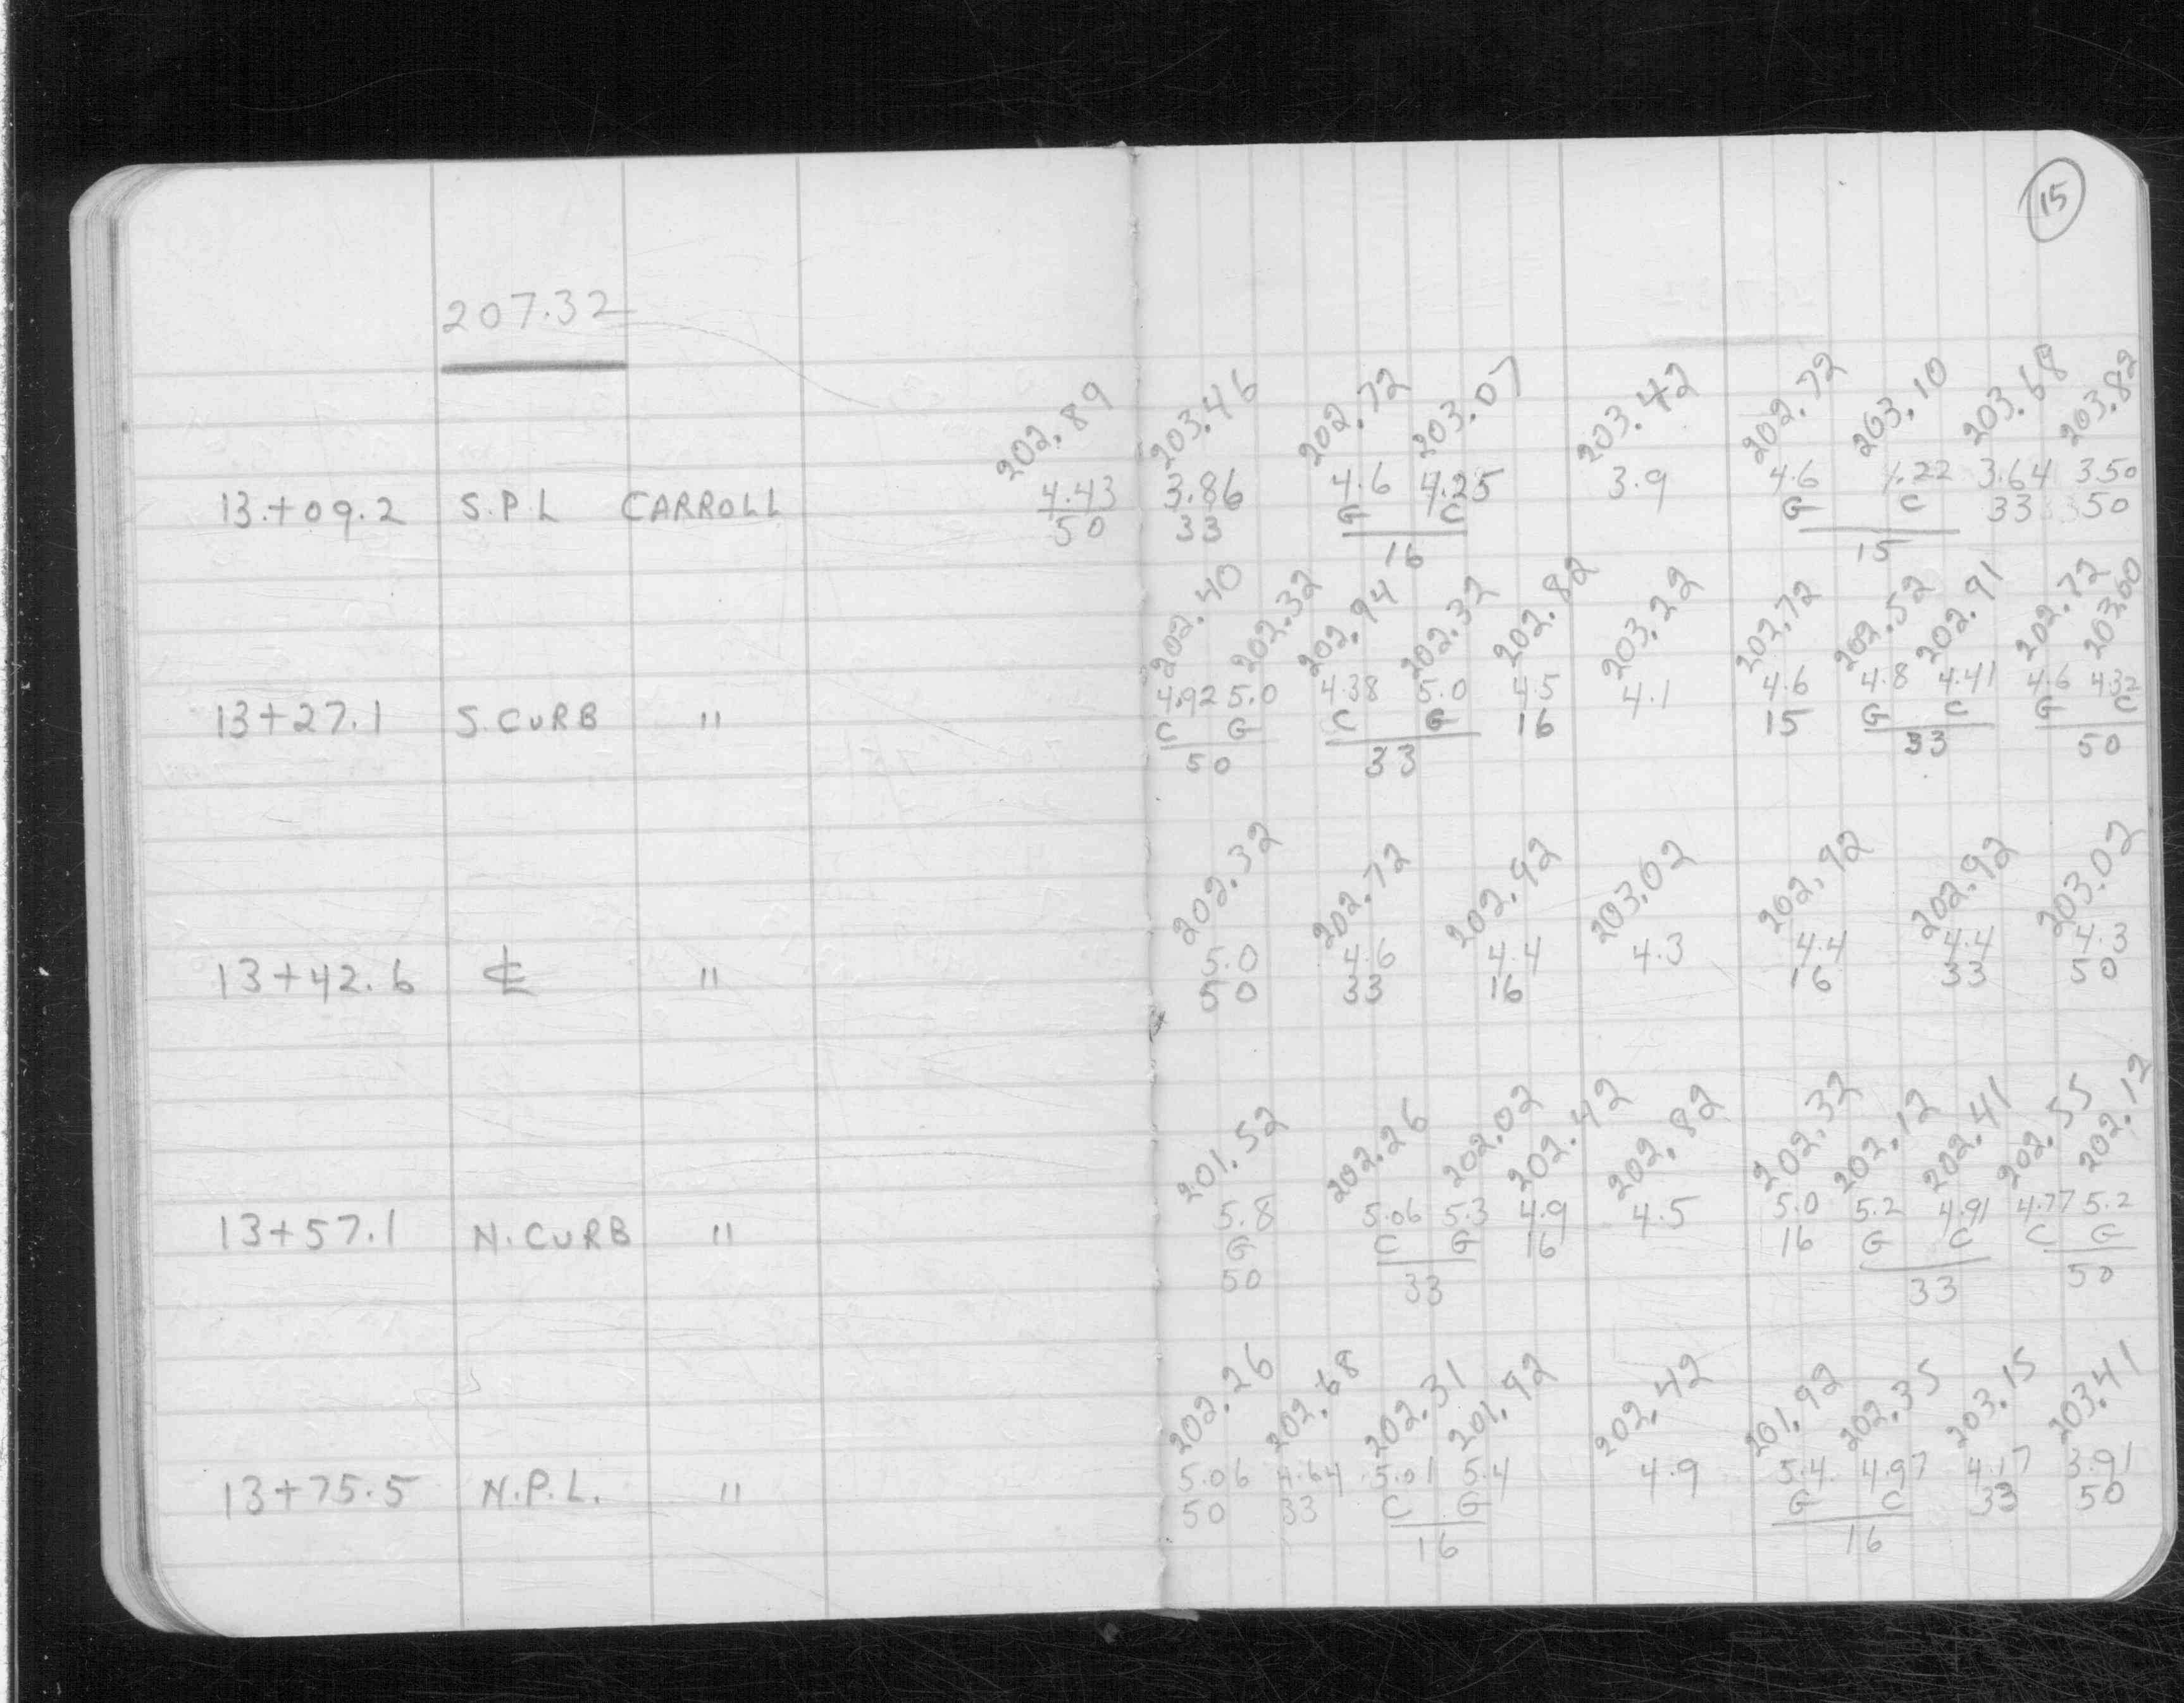 15
207.32
202.89 203.46 202.72 203.07 203.42 202.72 203.10 203.68 203.82
13+09.2 S.P.L CARROLL 4.43 3.86 4.6 4.25 3.9 4.6 4.22 3.64 3.50
50 33 G C G C 33 50
16 15
202.40 202.32 202.94 202.32 202.82 203.22 202.72 202.52 202.91 202.72 203.00
4.92 5.0 4.38 5.0 4.5 4.1 4.6 4.8 4.41 4.6 4.32
13+27.1 S.CURB " C G C G 16 15 G C G C
50 33 33 50
202.32 202.72 202.92 203.02 202.92 202.92 203.02
5.0 4.6 4.4 4.3 4.4 4.4 4.3
13+42.6 ℄ " 50 33 16 16 33 50
201.52 202.26 202.02 202.42 202.82 202.32 202.12 202.41 202.55 202.12
5.8 5.06 5.3 4.9 4.5 5.0 5.2 4.91 4.77 5.2
13+57.1 N.CURB " G C G 16 16 G C C G
50 33 33 50
202.26 202.68 202.31 201.92 202.42 201.92 202.35 203.15 203.41
5.06 4.64 5.01 5.4 4.9 5.4 4.97 4.17 3.91
13+75.5 N.P.L. " 50 33 C G G C 33 50
16 16